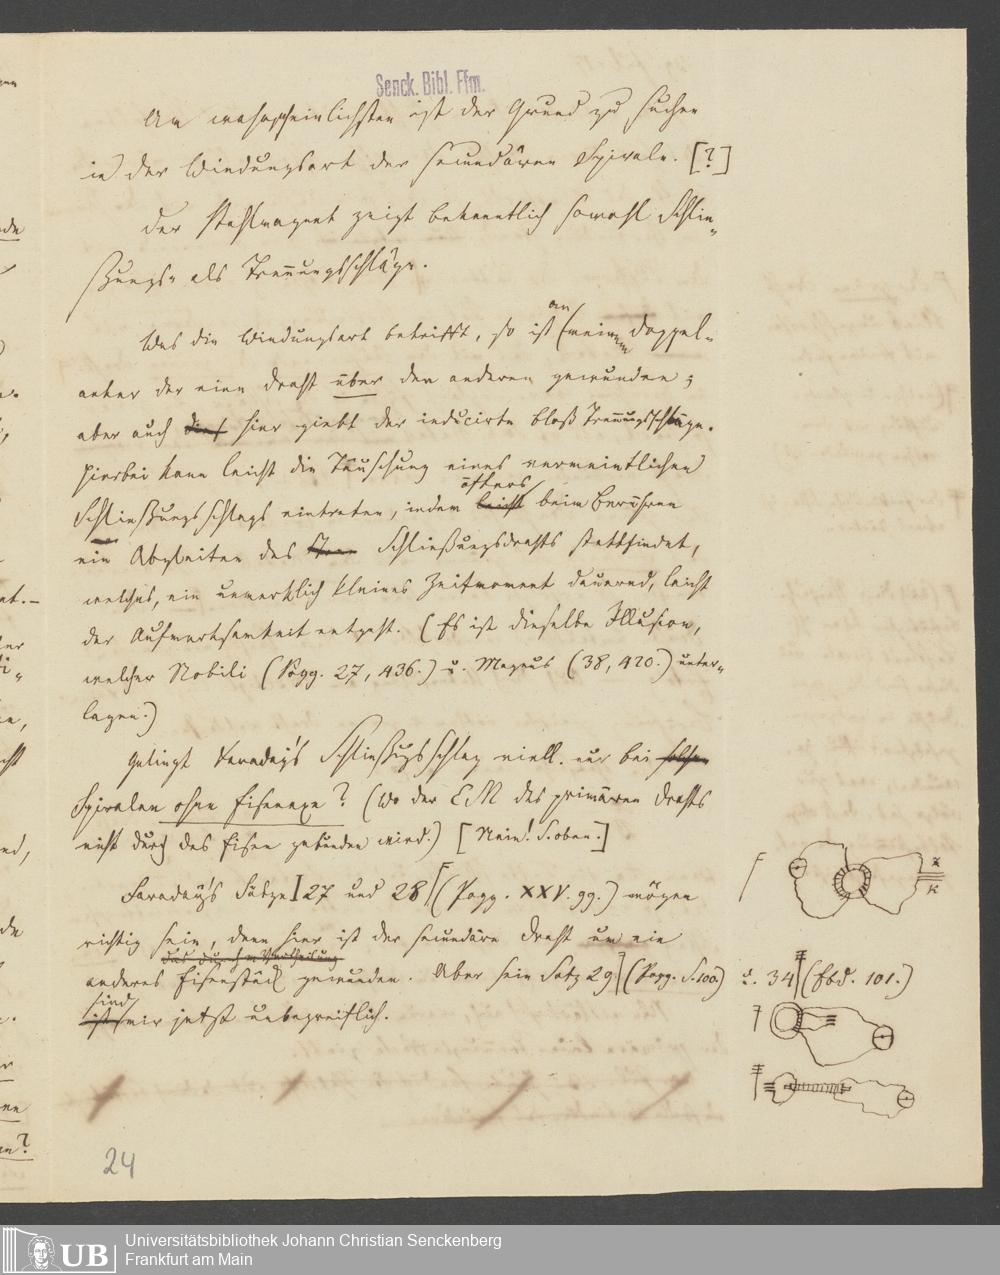 Senck. Bibl. Ffm.
Am wahrscheinlichsten ist der Grund zu suchen
in der Windungsart der secundären Spirale. [?]
Der Stahlmagnet zeigt bekanntlich sowohl Schlie-
ßungs- als Trennungsschläge.
Was die Windungsart betrifft, so ist an meinem Doppel-
anker der eine Draht über den anderen gewunden;
aber auch dies hier giebt der inducirte bloß Trennungsschläge.
Hierbei kann leicht die Täuschung eines vermeintlichen
öfters
Schließungsschlags eintreten, indem leicht beim Berühren
ein Abgleiten des Schließungsdrahts stattfindet,
welches, ein unmerklich kleines Zeitmoment dauernd, leicht
der Aufmerksamkeit entgeht. (Es ist dieselbe Illusion,
welcher Nobili (Pogg. 27, 436.) u. Magnus (38, 420.) unter-
lagen.)
Gelingt Faraday's Schließungsschlag viell. nur bei solchen
Spiralen ohne Eisenaxe? (Wo der EM des primären Drahts
nicht durch das Eisen gebunden wird.) [Nein! S. oben.]
Faraday's Sätze 27 und 28 (Pogg. XXV. 99.) mögen
richtig sein, denn hier ist der secundäre Draht um ein
das durch Vertheilung
anderes Eisenstück gewunden. Aber sein Satz 29 (Pogg. S. 100.) u. 34 (Ebd. 101.)
sind
ist mir jetzt unbegreiflich.
Z
K
24
UB
Universitätsbibliothek Johann Christian Senckenberg
Frankfurt am Main